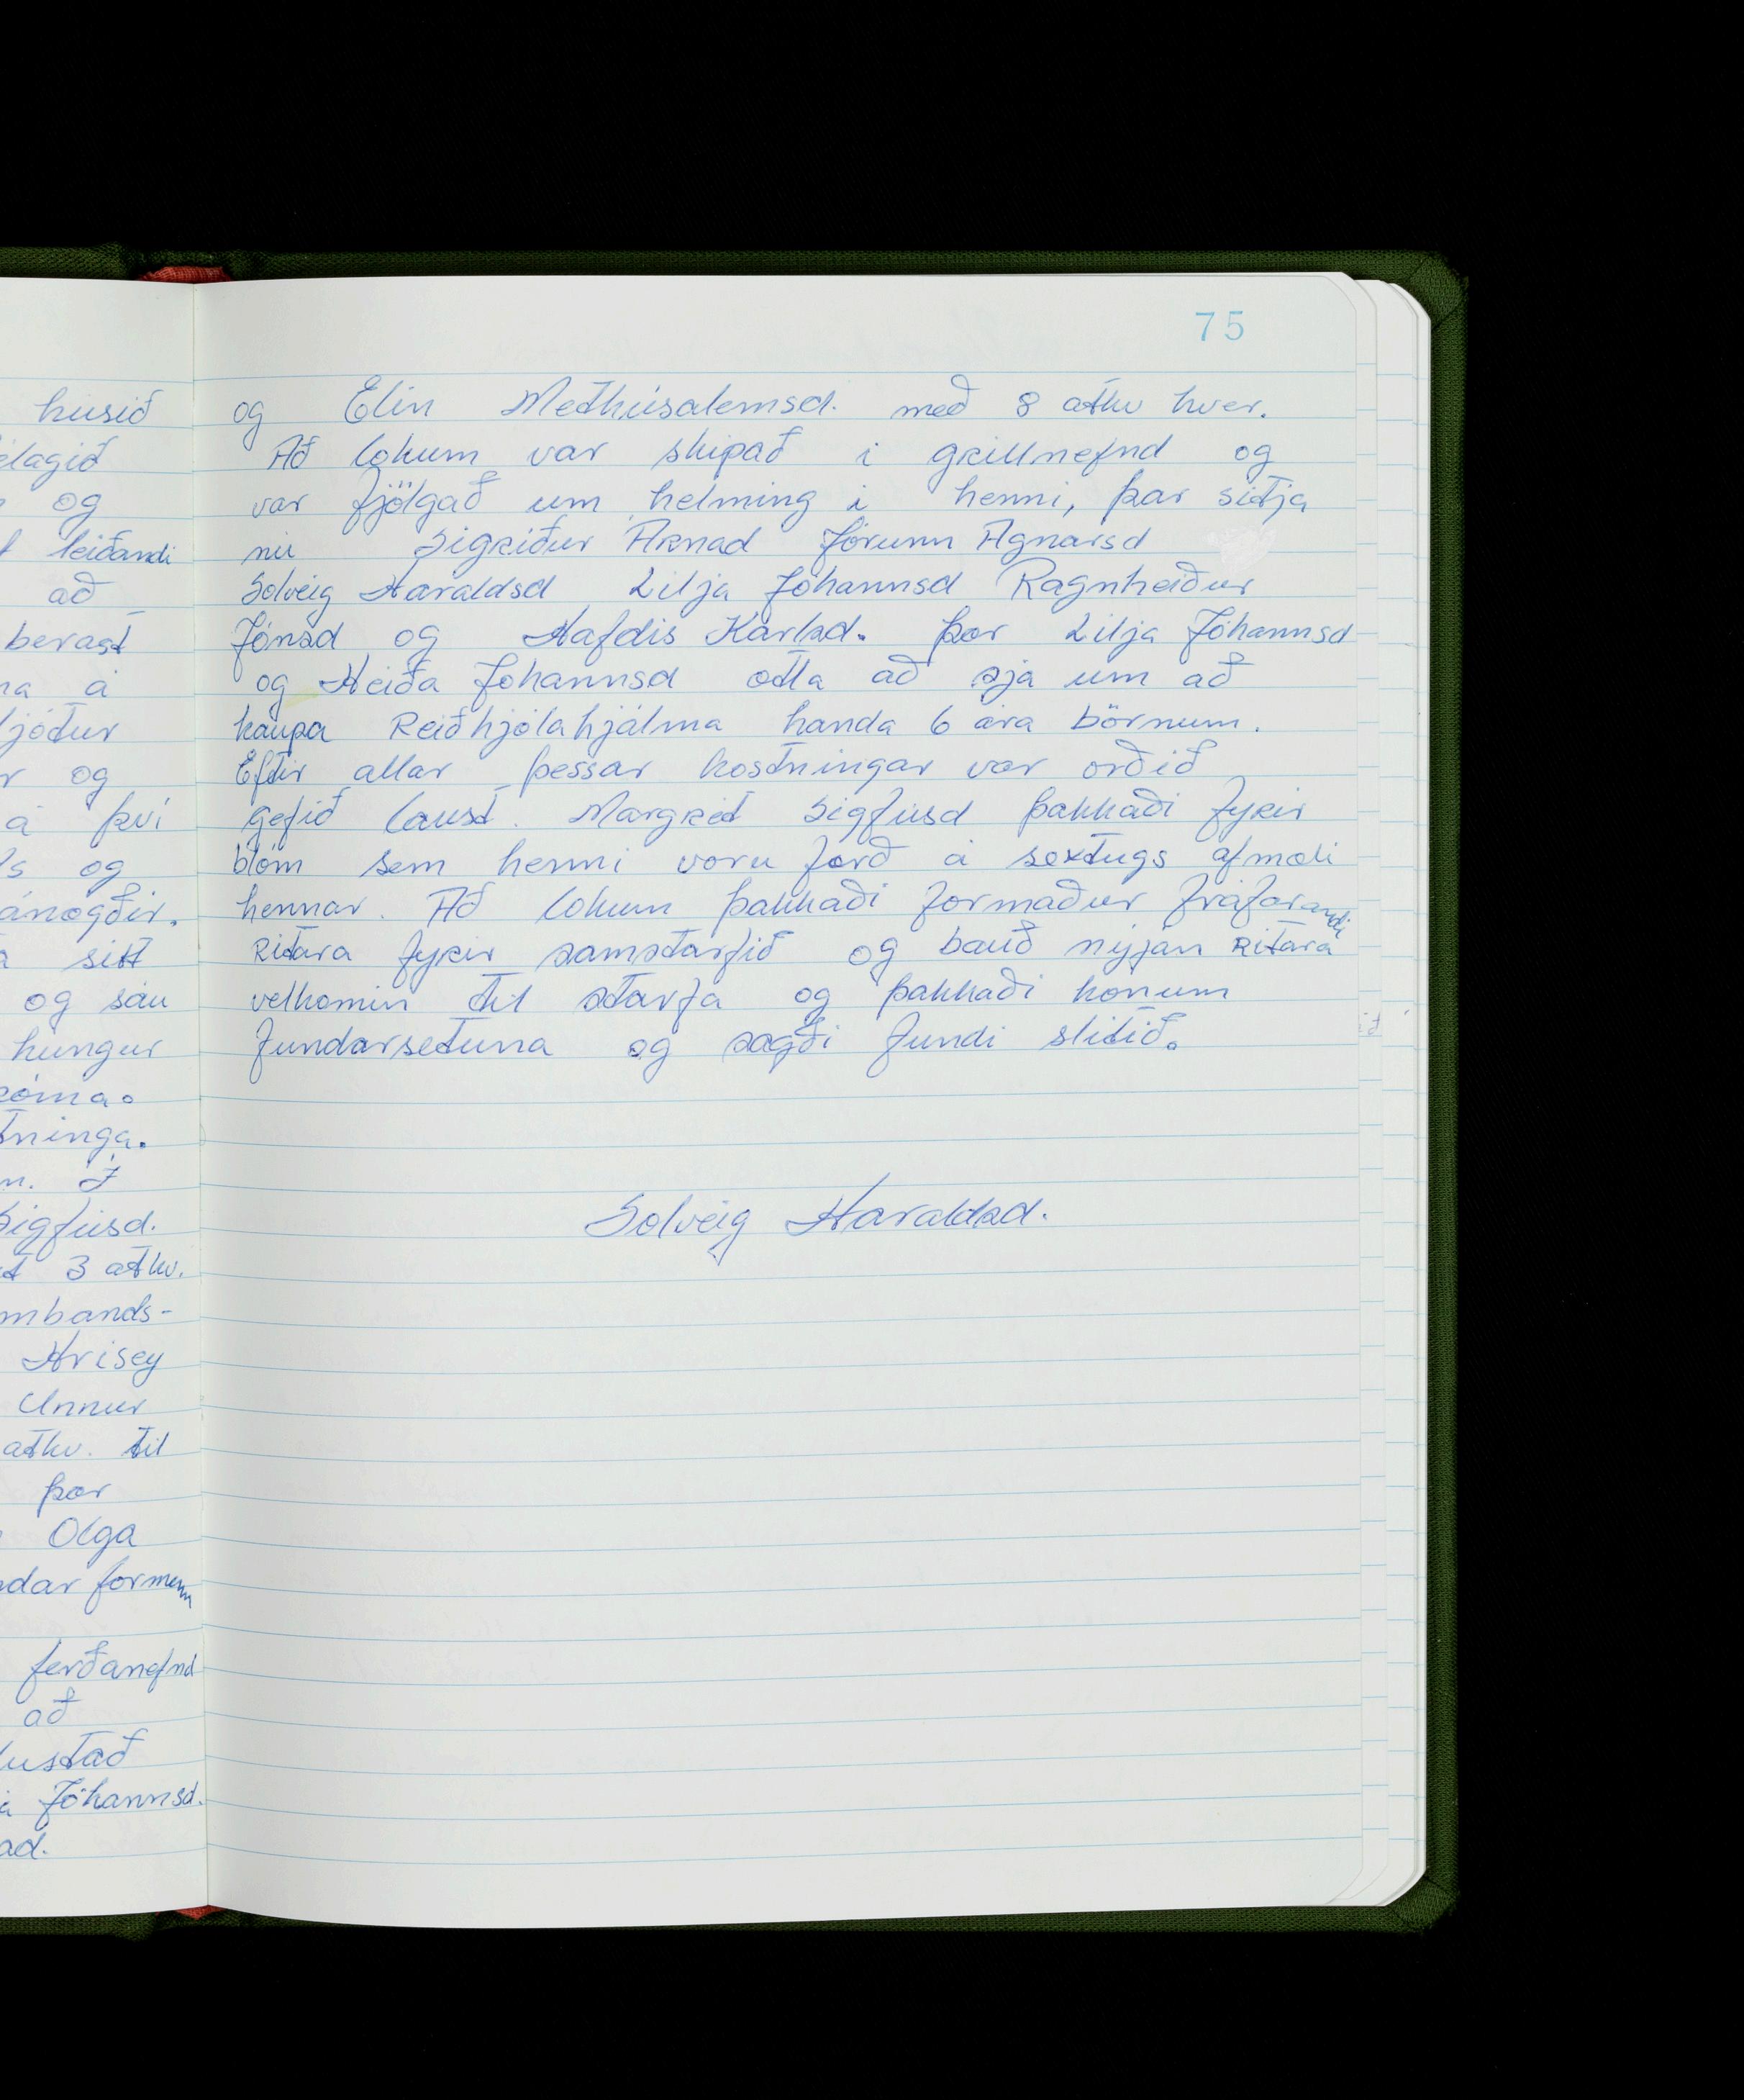 húsið
élagið
og
leiðandi
að
berast
na á
ljótur
r og
á því
ls og
ánægðir.
a sitt
og sáu
hungur
róma.
tninga.
n. Í
Sigfúsd.
3 athv.
mbands-
Hrísey
Unnur
athv. til
þær
Olga
ndar formenn
ferðanefnd
að
lustað
a Jóhannsd.
ad.
75
og Elín Methúsalemsd. með 8 athv hver.
Að lokum var skipað í grillnefnd og
var fjölgað um helming í henni, þar sitja
nú Sigríður Árnad Jórunn Agnarsd
Solveig Haraldsd Lilja Jóhannsd Ragnheiður
Jónsd og Hafdís Karlsd. Þær Lilja Jóhannsd
og Heiða Jóhannsd ætla að sjá um að
kaupa Reiðhjólahjálma handa 6 ára börnum.
Eftir allar þessar kostningar var orðið
gefið laust. Margrét Sigfúsd þakkaði fyrir
blóm sem henni voru færð á sextugs afmæli
hennar. Að lokum þakkaði formaður fráfarandi
Ritara fyrir samstarfið og bauð nýjan Ritara
velkomin til starfa og þakkaði konum
fundarsetuna og sagði fundi slitið.
Solveig Haraldsd.